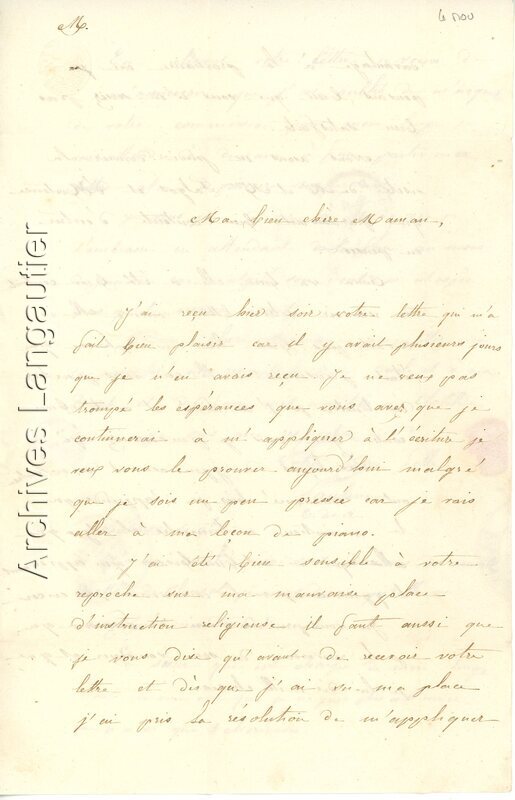 M.
6 nov
Ma bien chère Maman,
J'ai reçu hier soir votre lettre qui m'a
fait bien plaisir car il y avait plusieurs jours
que je n'en avais reçu. Je ne veux pas
trompé les espérances que vous avez que je
continuerai à m'appliquer à l'écriture je
veux vous le prouver aujourd'hui malgré
que je sois un peu pressée car je vais
aller à ma leçon de piano.
J'ai été bien sensible à votre
reproche sur ma mauvaise place
d'instruction religieuse il faut aussi que
je vous dise qu'avant de recevoir votre
lettre et dès que j'ai vu ma place
j'ai pris la résolution de m'appliquer
Archives Langautier